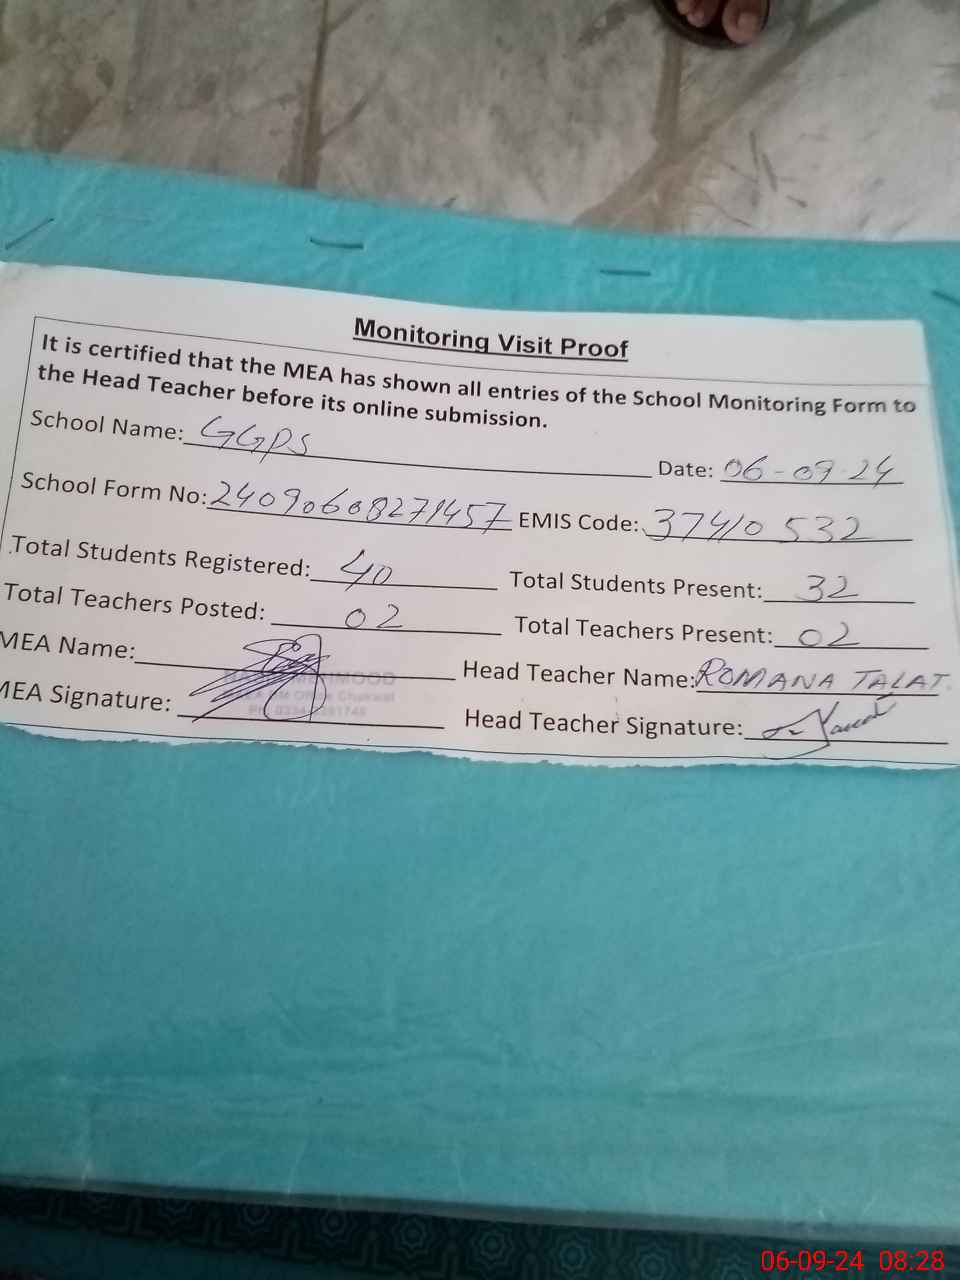 Monitoring Visit Proof
It is certified that the MEA has shown all entries of the School Monitoring Form to
the Head Teacher before its online submission.
School Name: GGPS Date: 06-09-24
School Form No: 24090608271457 EMIS Code: 37410532
Total Students Registered: 40 Total Students Present: 32
Total Teachers Posted: 02 Total Teachers Present: 02
MEA Name: Head Teacher Name: ROMANA TALAT
MEA Signature: Head Teacher Signature:
06-09-24 08:28